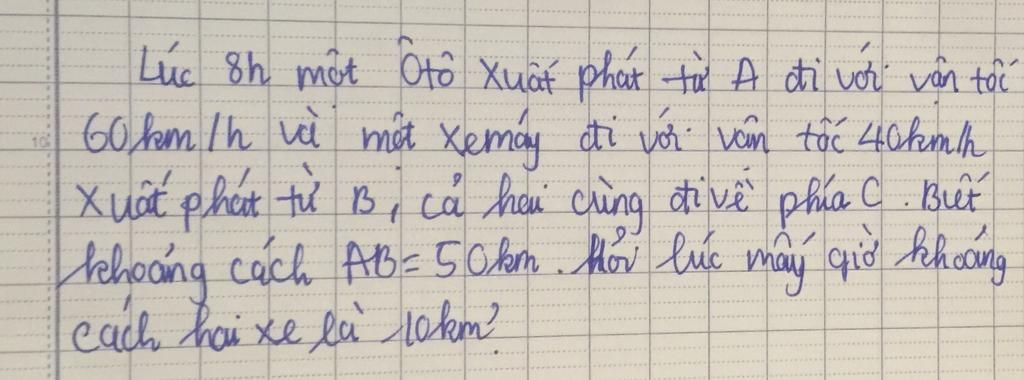 Lúc 8h một Ôtô xuất phát từ A đi với vận tốc
60km/h và một xe máy đi với vân tốc 40km/h
xuất phát từ B, cả hai cùng đi về phía C. Biết
khoảng cách AB = 50km. Hỏi lúc mấy giờ khoảng
cách hai xe là 10km?